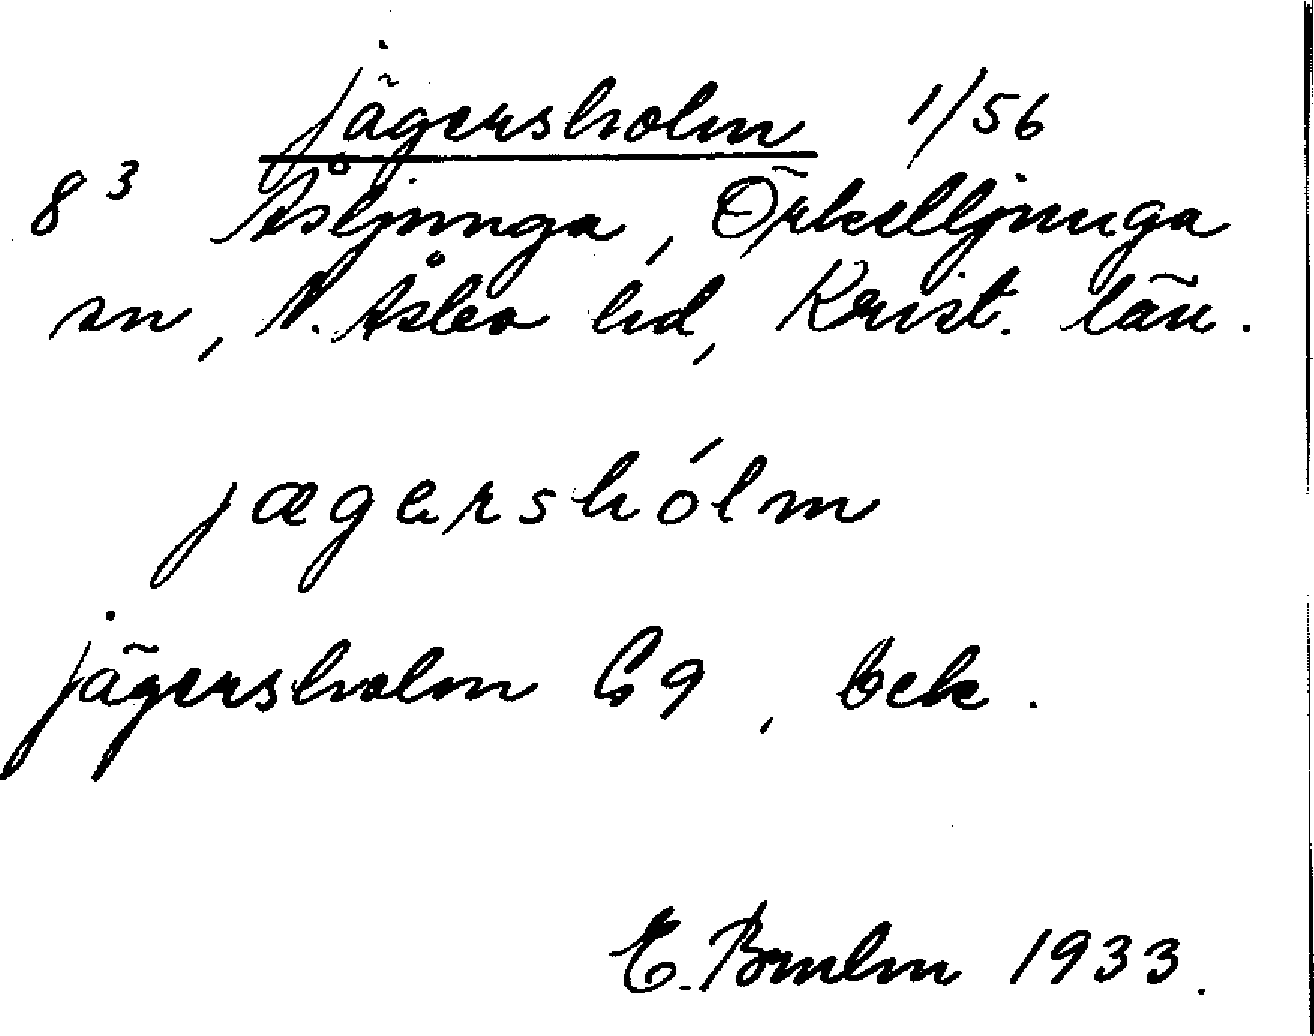 Jägersholm 1/56
8³ Åsljunga, Örkelljunga
sn, N. Åsbo hd, Krist. län.
jægershólm
Jägersholm G9, bek.
E. Bruhn 1933.